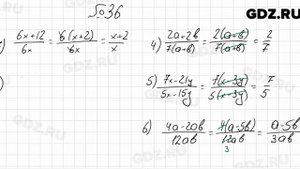 GDZ.RU
№ 36
) (6x+12)/6x = 6(x+2)/6x = (x+2)/x
4) (2a+2b)/7(a+b) = 2(a+b)/7(a+b) = 2/7
5) (7x-21y)/(5x-15y) = 7(x-3y)/5(x-3y) = 7/5
6) (4a-20b)/12ab = 4(a-5b)/12ab 3 = (a-5b)/3ab
GDZ.RU